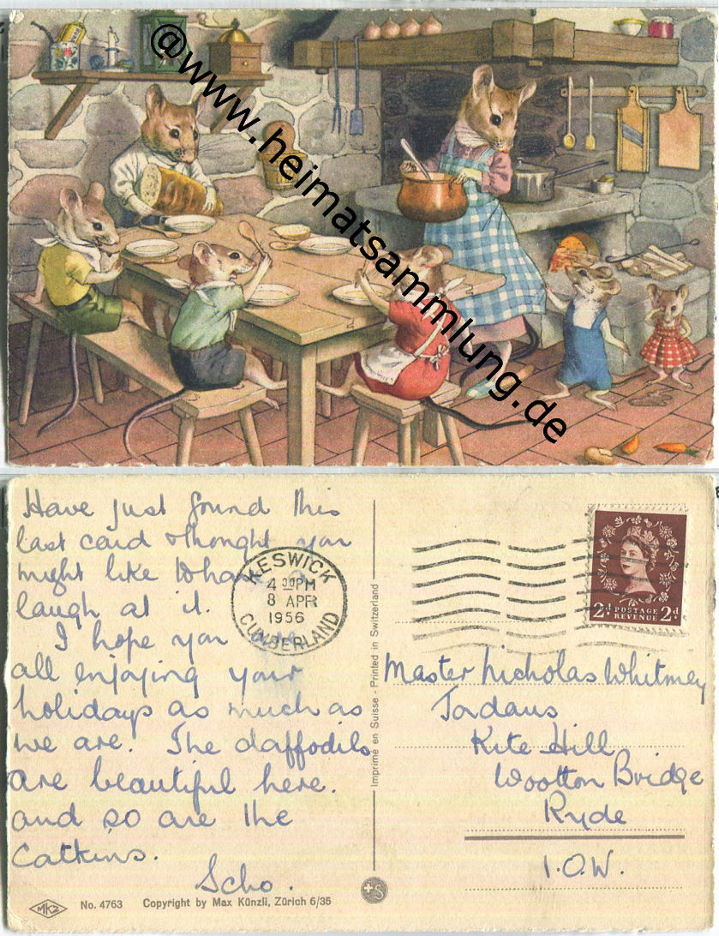 @www.heimatsammlung.de
Have just found this
last card & thought you
might like to have
laugh at it.
I hope you are
all enjoying your
holidays as much as
we are. The daffodils
are beautiful here.
and so are the
Catkins.
Scho.
KESWICK
4 30 PM
8 APR
1956
CUMBERLAND
2d POSTAGE 2d
REVENUE
Master Nicholas Whitmey
Kite Hill
Wootton Bridge
Ryde
I.O.W.
Imprimé en Suisse - Printed in Switzerland
MKZ No. 4763 Copyright by Max Künzli, Zürich 6/35
S